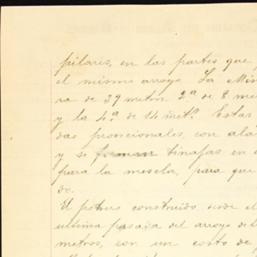 pilares, en las partes que
el mismo arroyo. La
ra de 39 metros 2ª de 8
y la 4ª de 14 metˢ. Estas
das provicionales, con
y se forman tinajas en
para la mescla, para que
do.
El construido, desde el
ultima pasada del arroyo de
metros, con un costo de